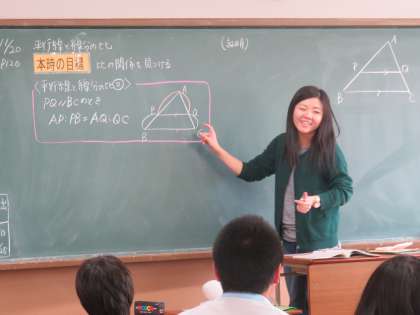 11/20 平行線と線分の比
P120 本時の目標 比の関係を見つける
(説明)
〈平行線と線分の比②〉
PQ//BCのとき
AP:PB=AQ:QC
A
P
Q
B
A
P
B
C